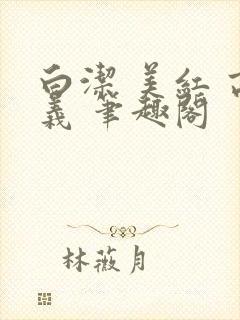 白潔 美紅 
義 筆趣閣
林薇月